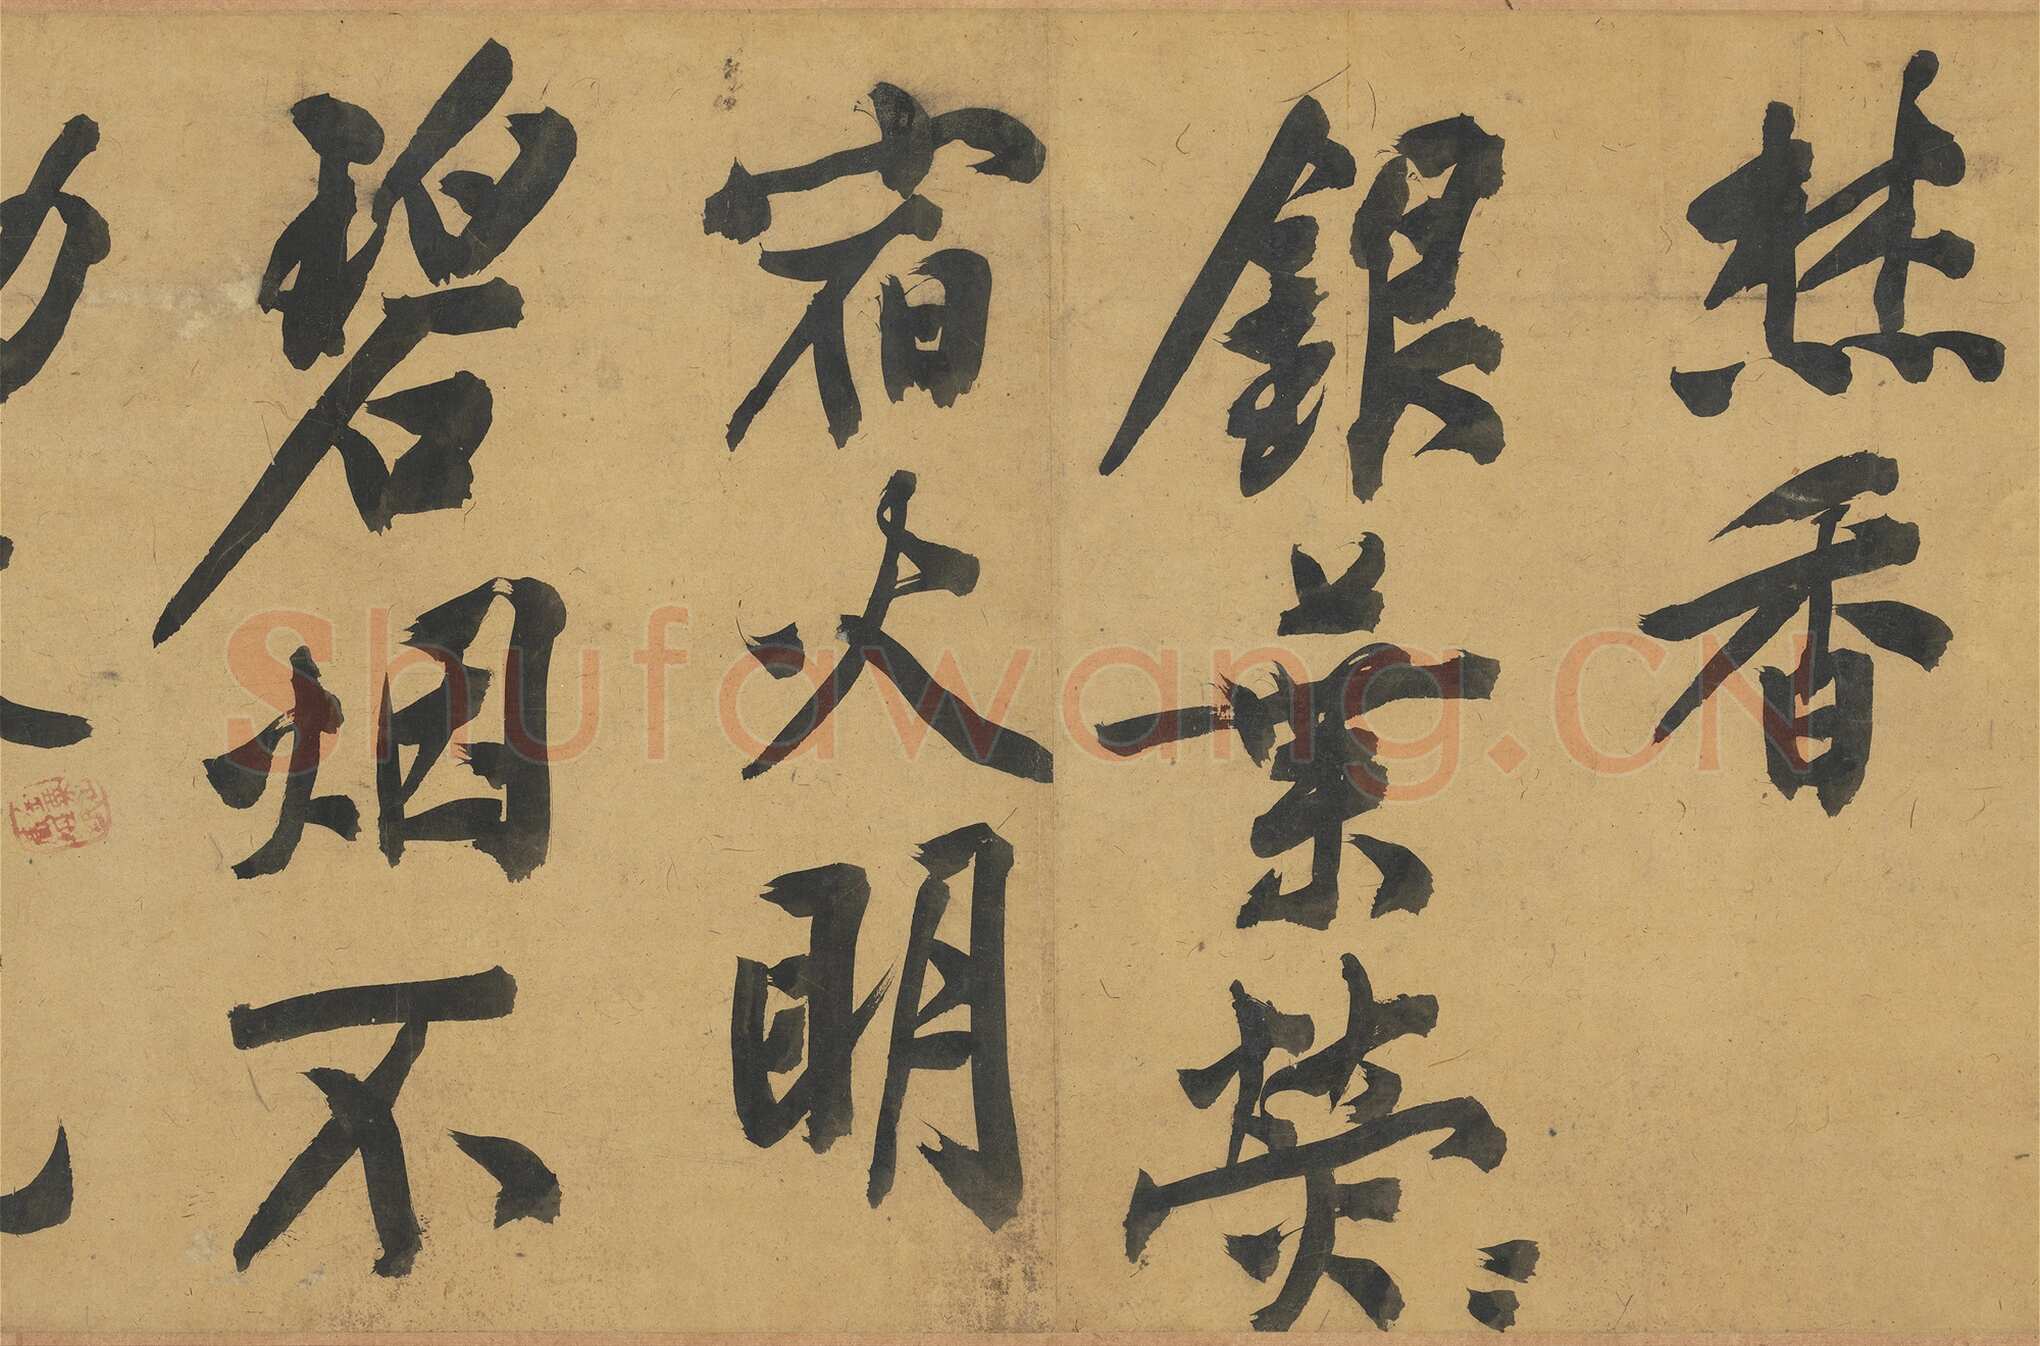 焚香
銀葉熒〻
宿火明
碧烟不
動
Shufawang.CN